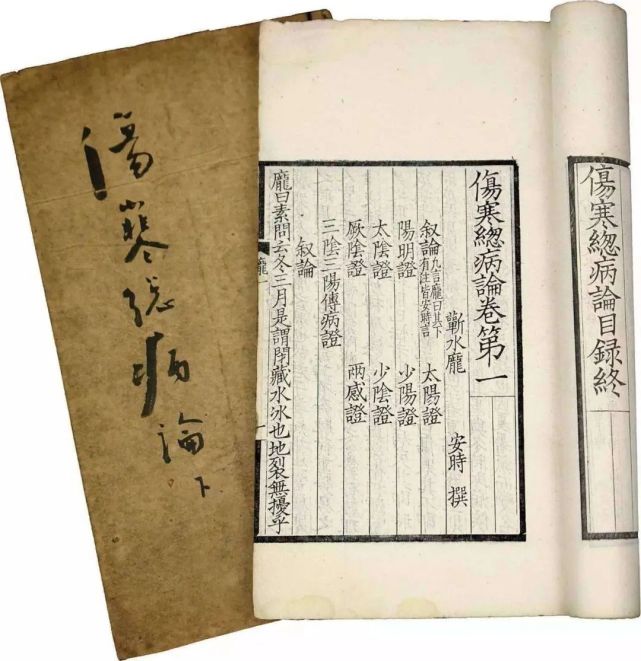 傷寒緫病論目録終
傷寒緫病論卷第一
蘄水龐 安時 撰
叙論 凡言龐曰其下有注皆安時言 太陽證
陽明證 少陽證
太陰證 少陰證
厥陰證 兩感證
三陰三陽傳病證
叙論
龐曰素問云冬三月是謂閉藏水冰也地裂無擾乎
傷寒総病論 下